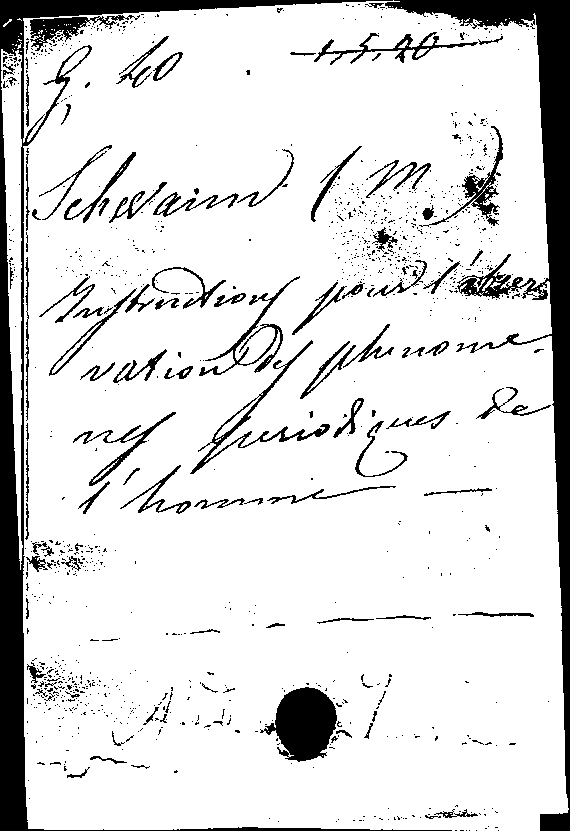 G. 40 1,5,20
Schwann (M.)
Instructions pour l'obser
vation des phénomè-
nes périodiques de
l'homme —